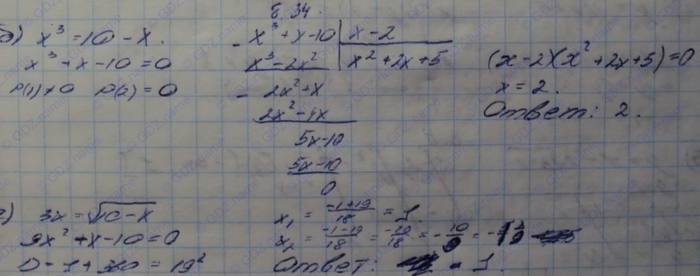 6.34.
б) x³ = 10 - x.
x³ + x - 10 = 0
P(1) ≠ 0 P(2) = 0
- x³ + x - 10 | x - 2
x³ - 2x² | x² + 2x + 5
- 2x² + x
2x² - 4x
5x - 10
5x - 10
0
(x - 2)(x² + 2x + 5) = 0
x = 2.
Ответ: 2.
г) 3x = √10 - x
9x² + x - 10 = 0
D = 1 + 360 = 19²
x₁ = -1+19/18 = 1.
x₂ = -1-19/18 = -20/18 = -10/9 = -1 1/9
Ответ: 1.